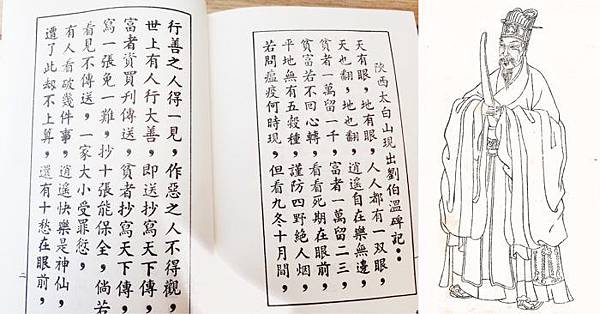 陝西太白山現出劉伯溫碑記：
天有眼，地有眼，人人都有一双眼，
天也翻，地也翻，逍遥自在樂無邊，
貧者一萬留一千，富者一萬留二三，
貧富若不回心轉，看看死期在眼前，
平地無有五穀種，謹防四野絶人烟，
若問瘟疫何時現，但看九冬十月間，
行善之人得一見，作惡之人不得觀，
世上有人行大善，即送抄寫天下傳，
富者資買刊傳送，貧者抄寫天下傳，
寫一張免一難，抄十張能保全，倘若
看見不傳送，一家大小受罪愆，
有人看破幾件事，逍遥快樂是神仙，
遭了此劫不上算，還有十愁在眼前，
二